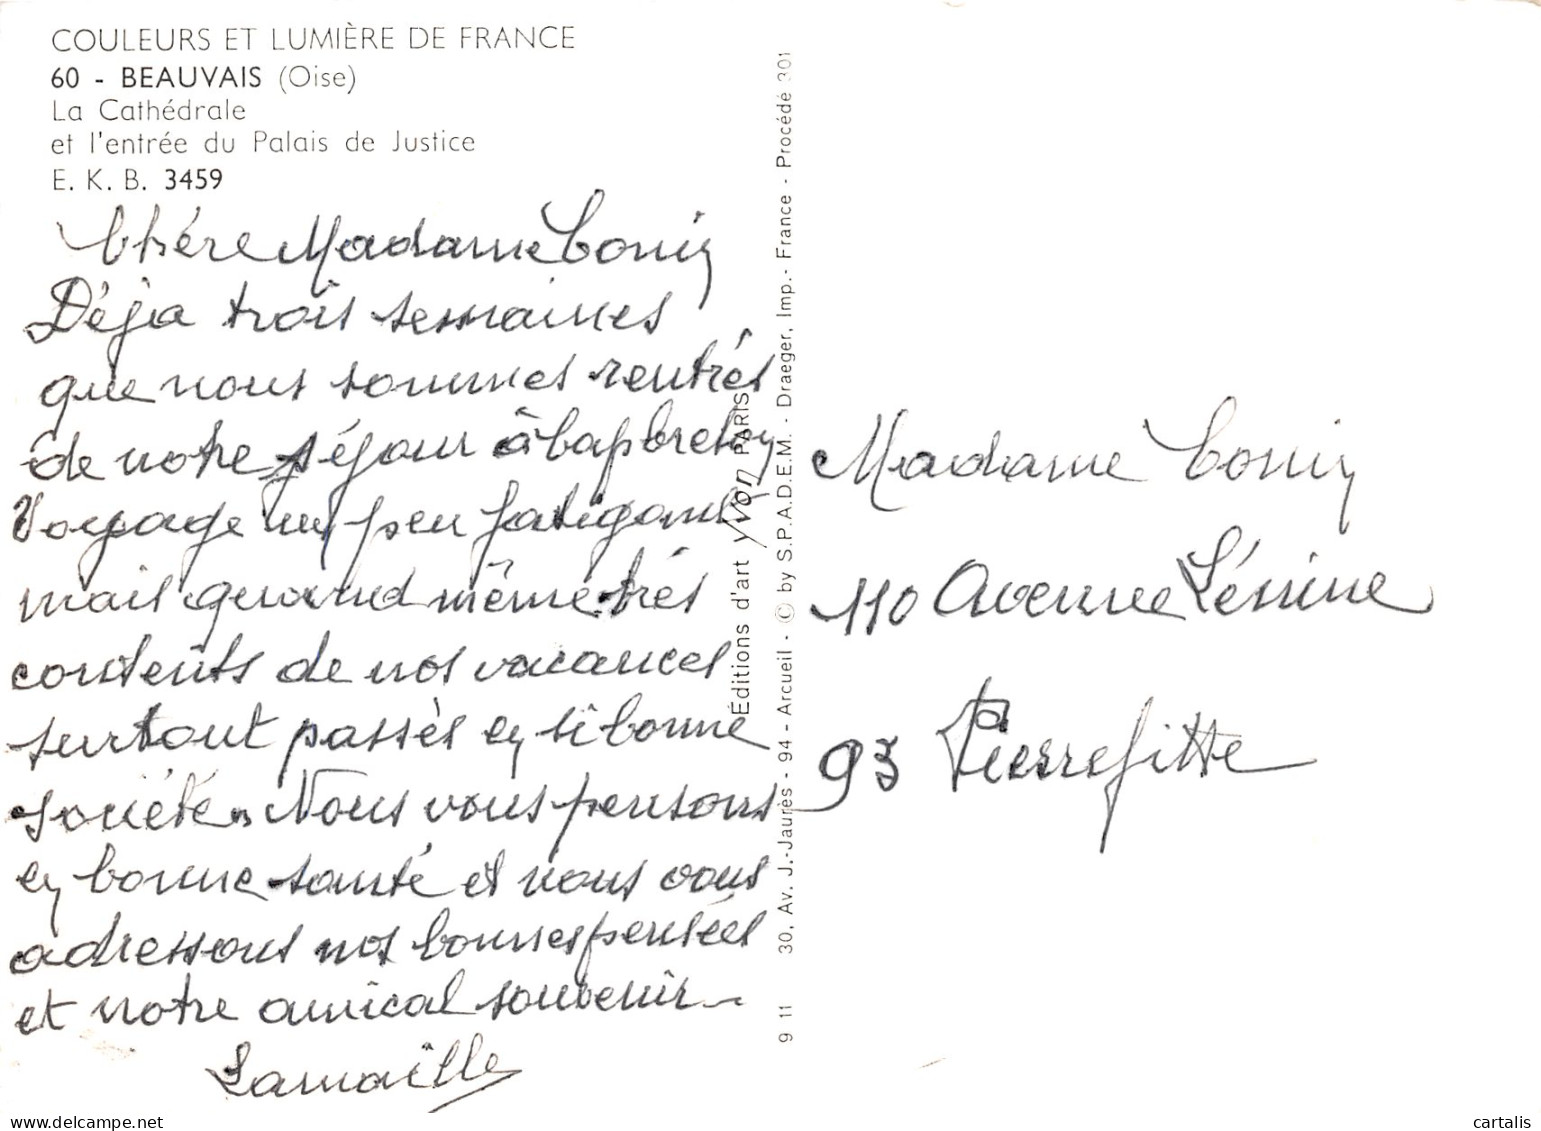 COULEURS ET LUMIÈRE DE FRANCE
60 - BEAUVAIS (Oise)
La Cathédrale
et l'entrée du Palais de Justice
E. K. B. 3459
Chére Madame
Déja trois semaines
que nous sommes rentrés
de notre séjour à Capbreton
Voyage un peu fatigant
mais quand même très
contents de nos vacances
surtout passès en si bonne
société. Nous vous pensons
en bonne santé et nous vous
adressons nos bonnes pensées
et notre amical souvenir
Éditions d'art Yvon PARIS
30, Av. J.-Jaurès - 94 - Arcueil - © by S.P.A.D.E.M. - Draeger, Imp. - France - Procédé 301
9 11
Madame
110 Avenue
93 Pierrefitte
cartalis